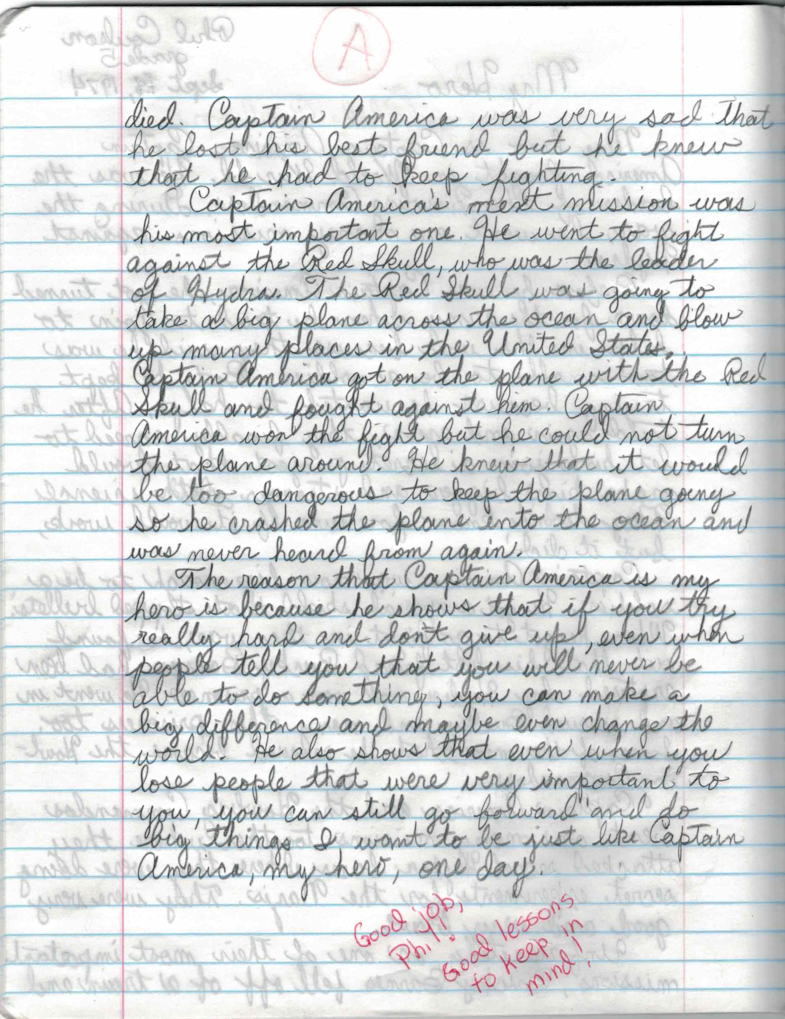 A
died. Captain America was very sad that
he lost his best friend but he knew
that he had to keep fighting.
Captain America's next mission was
his most important one. He went to fight
against the Red Skull, who was the leader
of Hydra. The Red Skull was going to
take a big plane across the ocean and blow
up many places in the United States.
Captain America got on the plane with the Red
Skull and fought against him. Captain
America won the fight but he could not turn
the plane around. He knew that it would
be too dangerous to keep the plane going
so he crashed the plane into the ocean and
was never heard from again.
The reason that Captain America is my
hero is because he shows that if you try
really hard and don't give up, even when
people tell you that you will never be
able to do something, you can make a
big difference and maybe even change the
world. He also shows that even when you
lose people that were very important to
you, you can still go forward and do
big things I want to be just like Captain
America, my hero, one day.
Good job,
Phil!
Good lessons
to keep in
mind!